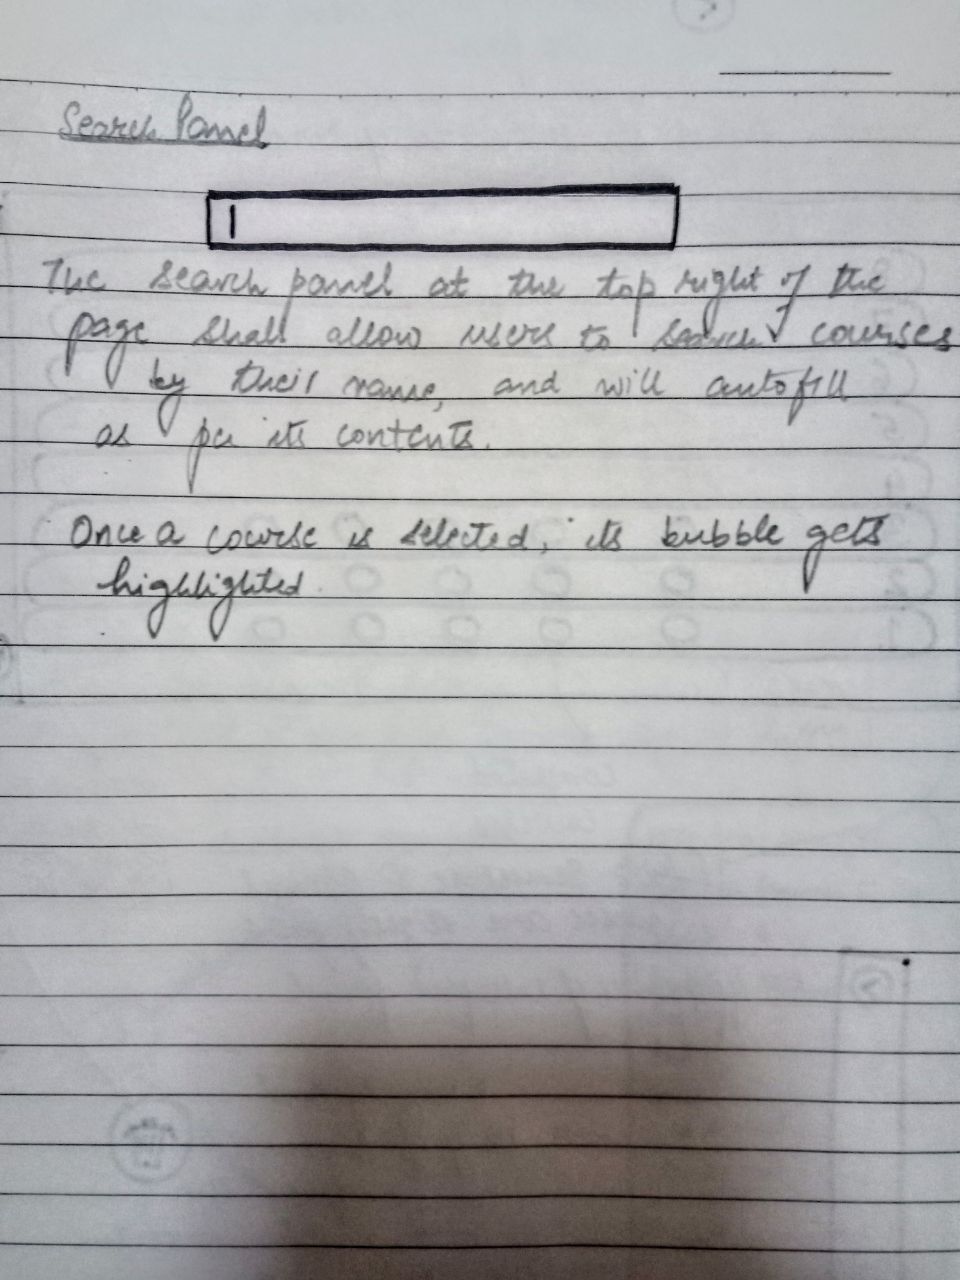 Search Panel
The search panel at the top right of the
page shall allow users to search courses
by their name, and will autofill
as per its contents.
Once a course is selected, its bubble gets
highlighted.